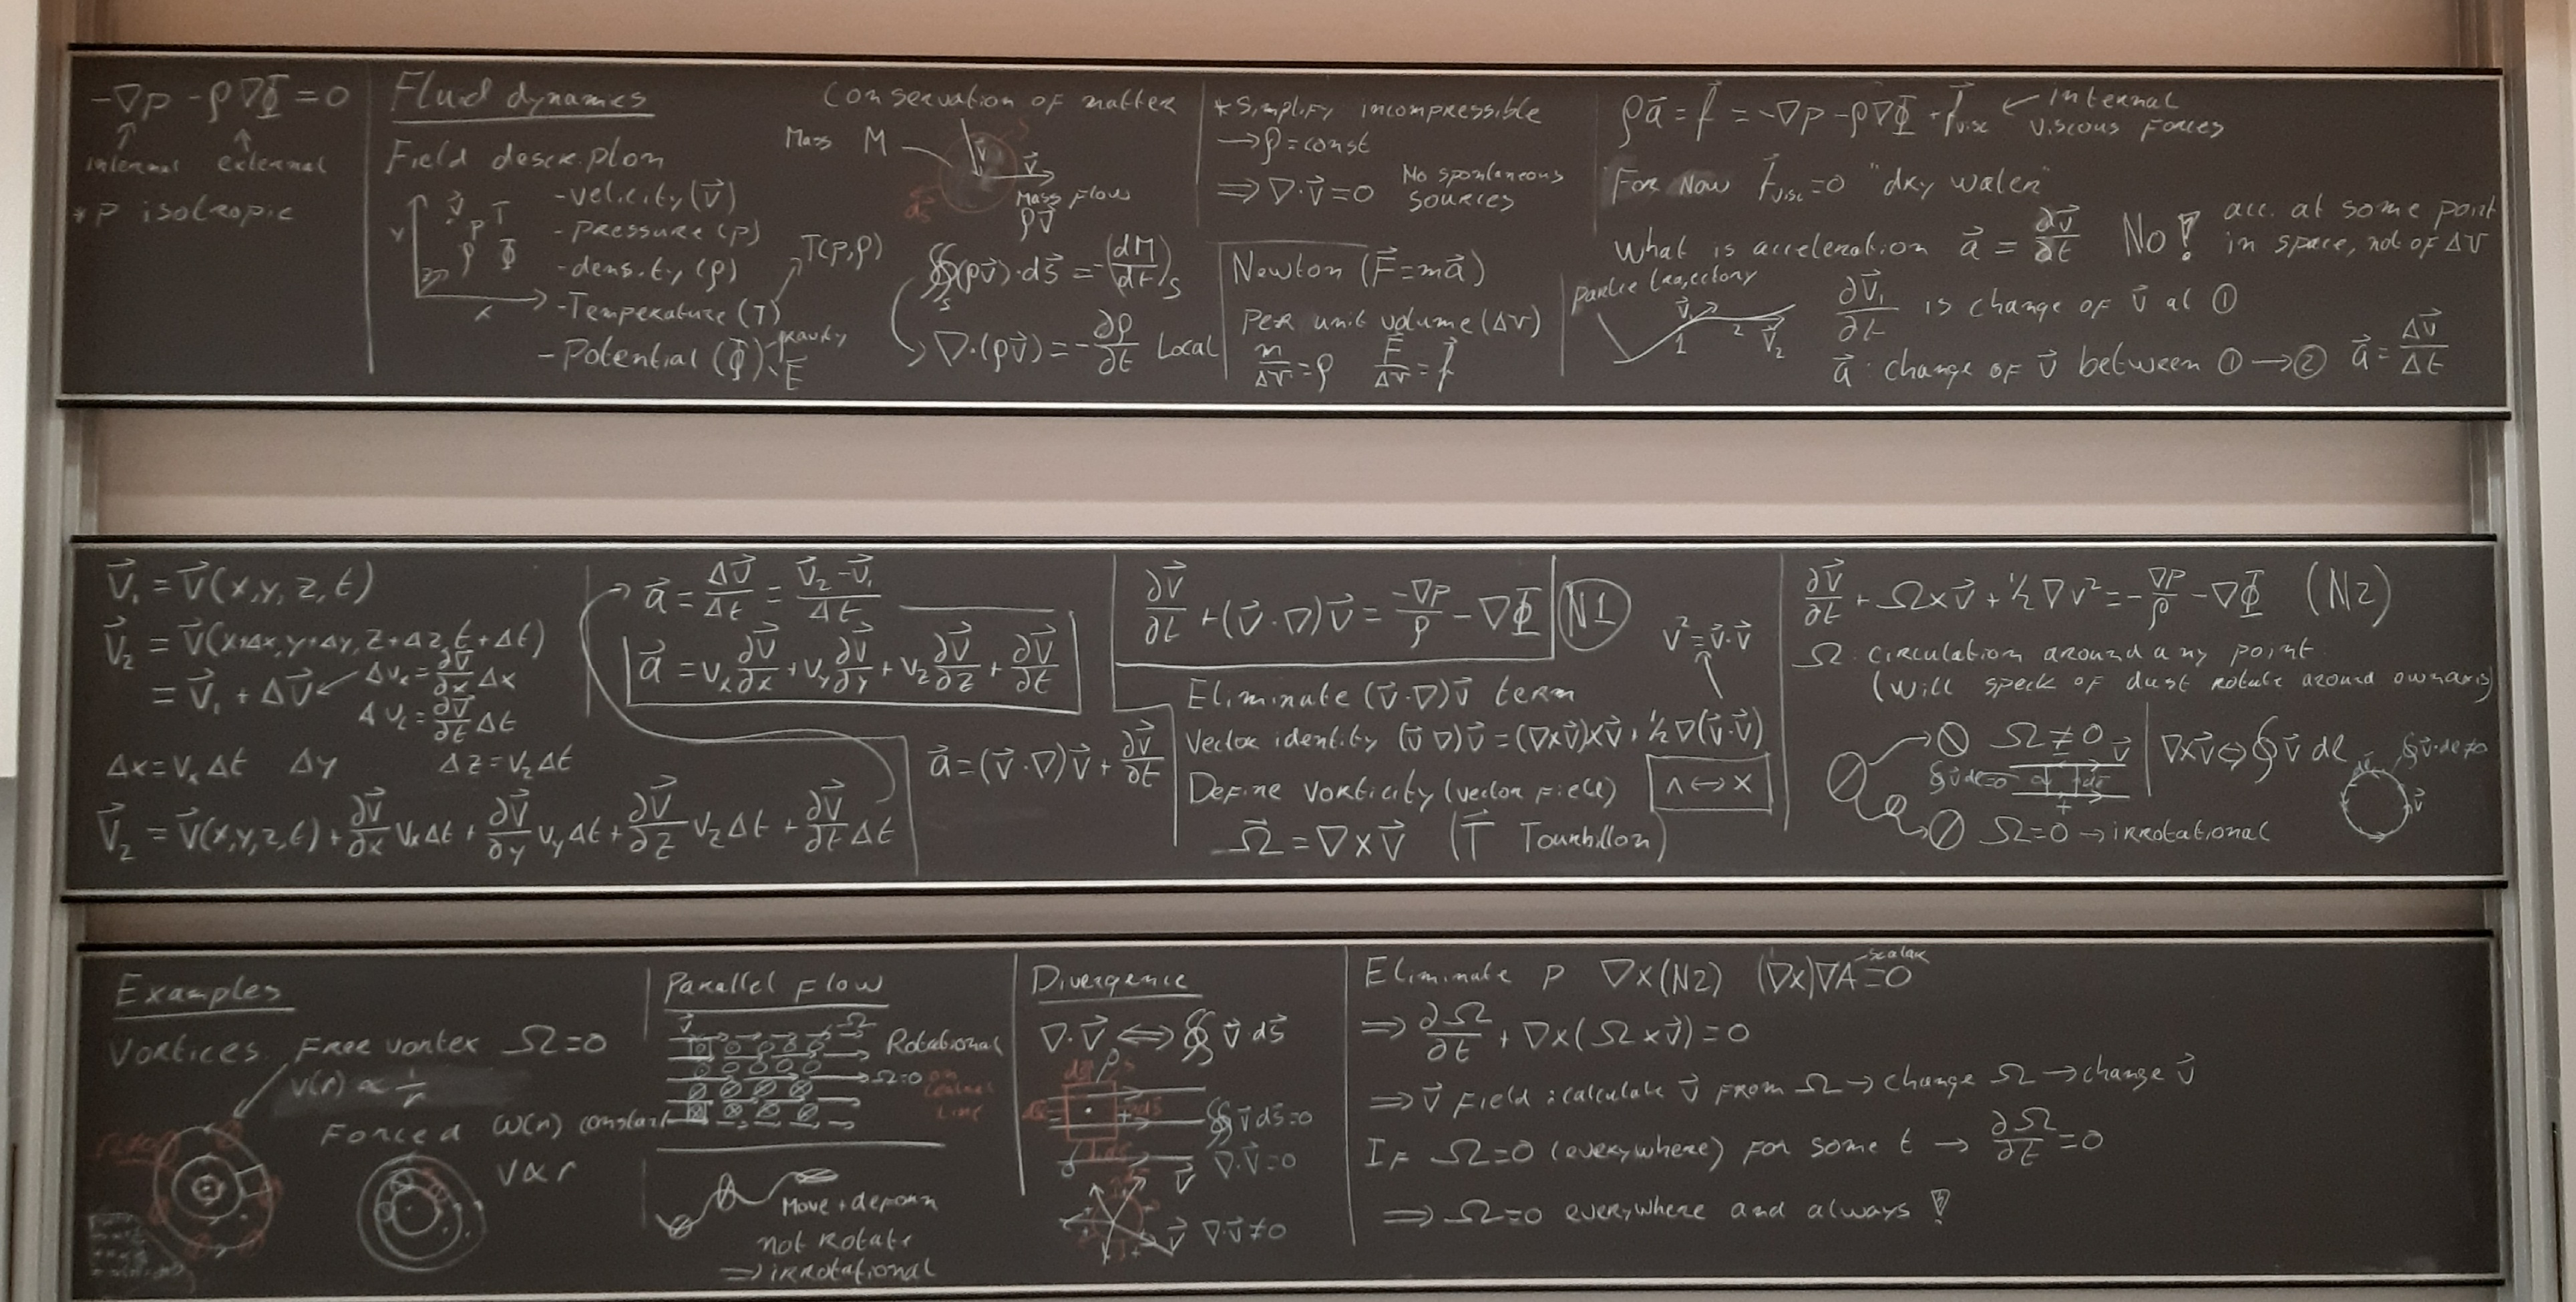 -∇p - ρ∇Φ = 0
internal external
* P isotropic
Fluid dynamics
Field description
y
x
z
v⃗ T
p
ρ Φ
- velocity (v⃗)
- pressure (p)
- density (ρ)
- Temperature (T)
T(p,ρ)
- Potential (Φ)
gravity
E⃗
Conservation of matter
Mass M
S
v⃗
v⃗
ds⃗
Mass Flow
ρv⃗
∯(ρv⃗)·ds⃗ = -(dM/dt)S
S
∇·(ρv⃗) = -∂ρ/∂t Local
* Simplify incompressible
→ ρ = const
⟹ ∇·v⃗ = 0 No spontaneous
sources
Newton (F⃗=ma⃗)
Per unit volume (ΔV)
m/ΔV = ρ F⃗/ΔV = f⃗
ρa⃗ = f⃗ = -∇p - ρ∇Φ + f⃗visc ← Internal
viscous forces
For Now f⃗visc=0 "dry water"
What is acceleration a⃗ = ∂v⃗/∂t No! acc. at some point
in space, not of ΔV
v⃗₁
1
2
v⃗₂
∂v⃗₁/∂t is change of v⃗ at ①
a⃗: change of v⃗ between ① → ② a⃗ = Δv⃗/Δt
v⃗₁ = v⃗(x,y,z,t)
v⃗₂ = v⃗(x+Δx,y+Δy,z+Δz,t+Δt)
= v⃗₁ + Δv⃗ ← Δvx = ∂v⃗/∂x Δx
Δvt = ∂v⃗/∂t Δt
Δx=vxΔt Δy Δz=vzΔt
v⃗₂ = v⃗(x,y,z,t) + ∂v⃗/∂x vxΔt + ∂v⃗/∂y vyΔt + ∂v⃗/∂z vzΔt + ∂v⃗/∂t Δt
a⃗ = Δv⃗/Δt = (v⃗₂ - v⃗₁)/Δt
a⃗ = vx ∂v⃗/∂x + vy ∂v⃗/∂y + vz ∂v⃗/∂z + ∂v⃗/∂t
a⃗ = (v⃗·∇)v⃗ + ∂v⃗/∂t
∂v⃗/∂t + (v⃗·∇)v⃗ = -∇p/ρ - ∇Φ N1
v² = v⃗·v⃗
Eliminate (v⃗·∇)v⃗ term
Vector identity (v⃗·∇)v⃗ = (∇×v⃗)×v⃗ + ½∇(v⃗·v⃗)
Define vorticity (vector field) ∧ ↔ ×
Ω⃗ = ∇×v⃗ (T⃗ Tourbillon)
∂v⃗/∂t + Ω×v⃗ + ½∇v² = -∇p/ρ - ∇Φ (N2)
Ω: circulation around any point
(will speck of dust rotate around own axis)
Ω ≠ 0
∮v⃗·dℓ=0
v⃗
∇×v⃗ ⇔ ∮v⃗ dℓ
∮v⃗·dℓ≠0
dℓ
v⃗
Ω=0 → irrotational
Examples
Vortices. Free vortex Ω=0
v(r) ∝ 1/r
Forced ω(r) constant
v∝r
Parallel Flow
v⃗
Ω
Rotational
Ω=0 on
central
line
Move + deform
not rotate
⟹ irrotational
Divergence
∇·v⃗ ⟺ ∯ v⃗·ds⃗
S
ds⃗
∯ v⃗ds⃗=0
∇·v⃗=0
v⃗
v⃗ ∇·v⃗≠0
Eliminate p ∇×(N2) (∇×)∇A=0
scalar
⟹ ∂Ω/∂t + ∇×(Ω×v⃗) = 0
⟹ v⃗ field: calculate v⃗ from Ω → change Ω → change v⃗
If Ω=0 (everywhere) for some t → ∂Ω/∂t = 0
⟹ Ω=0 everywhere and always!